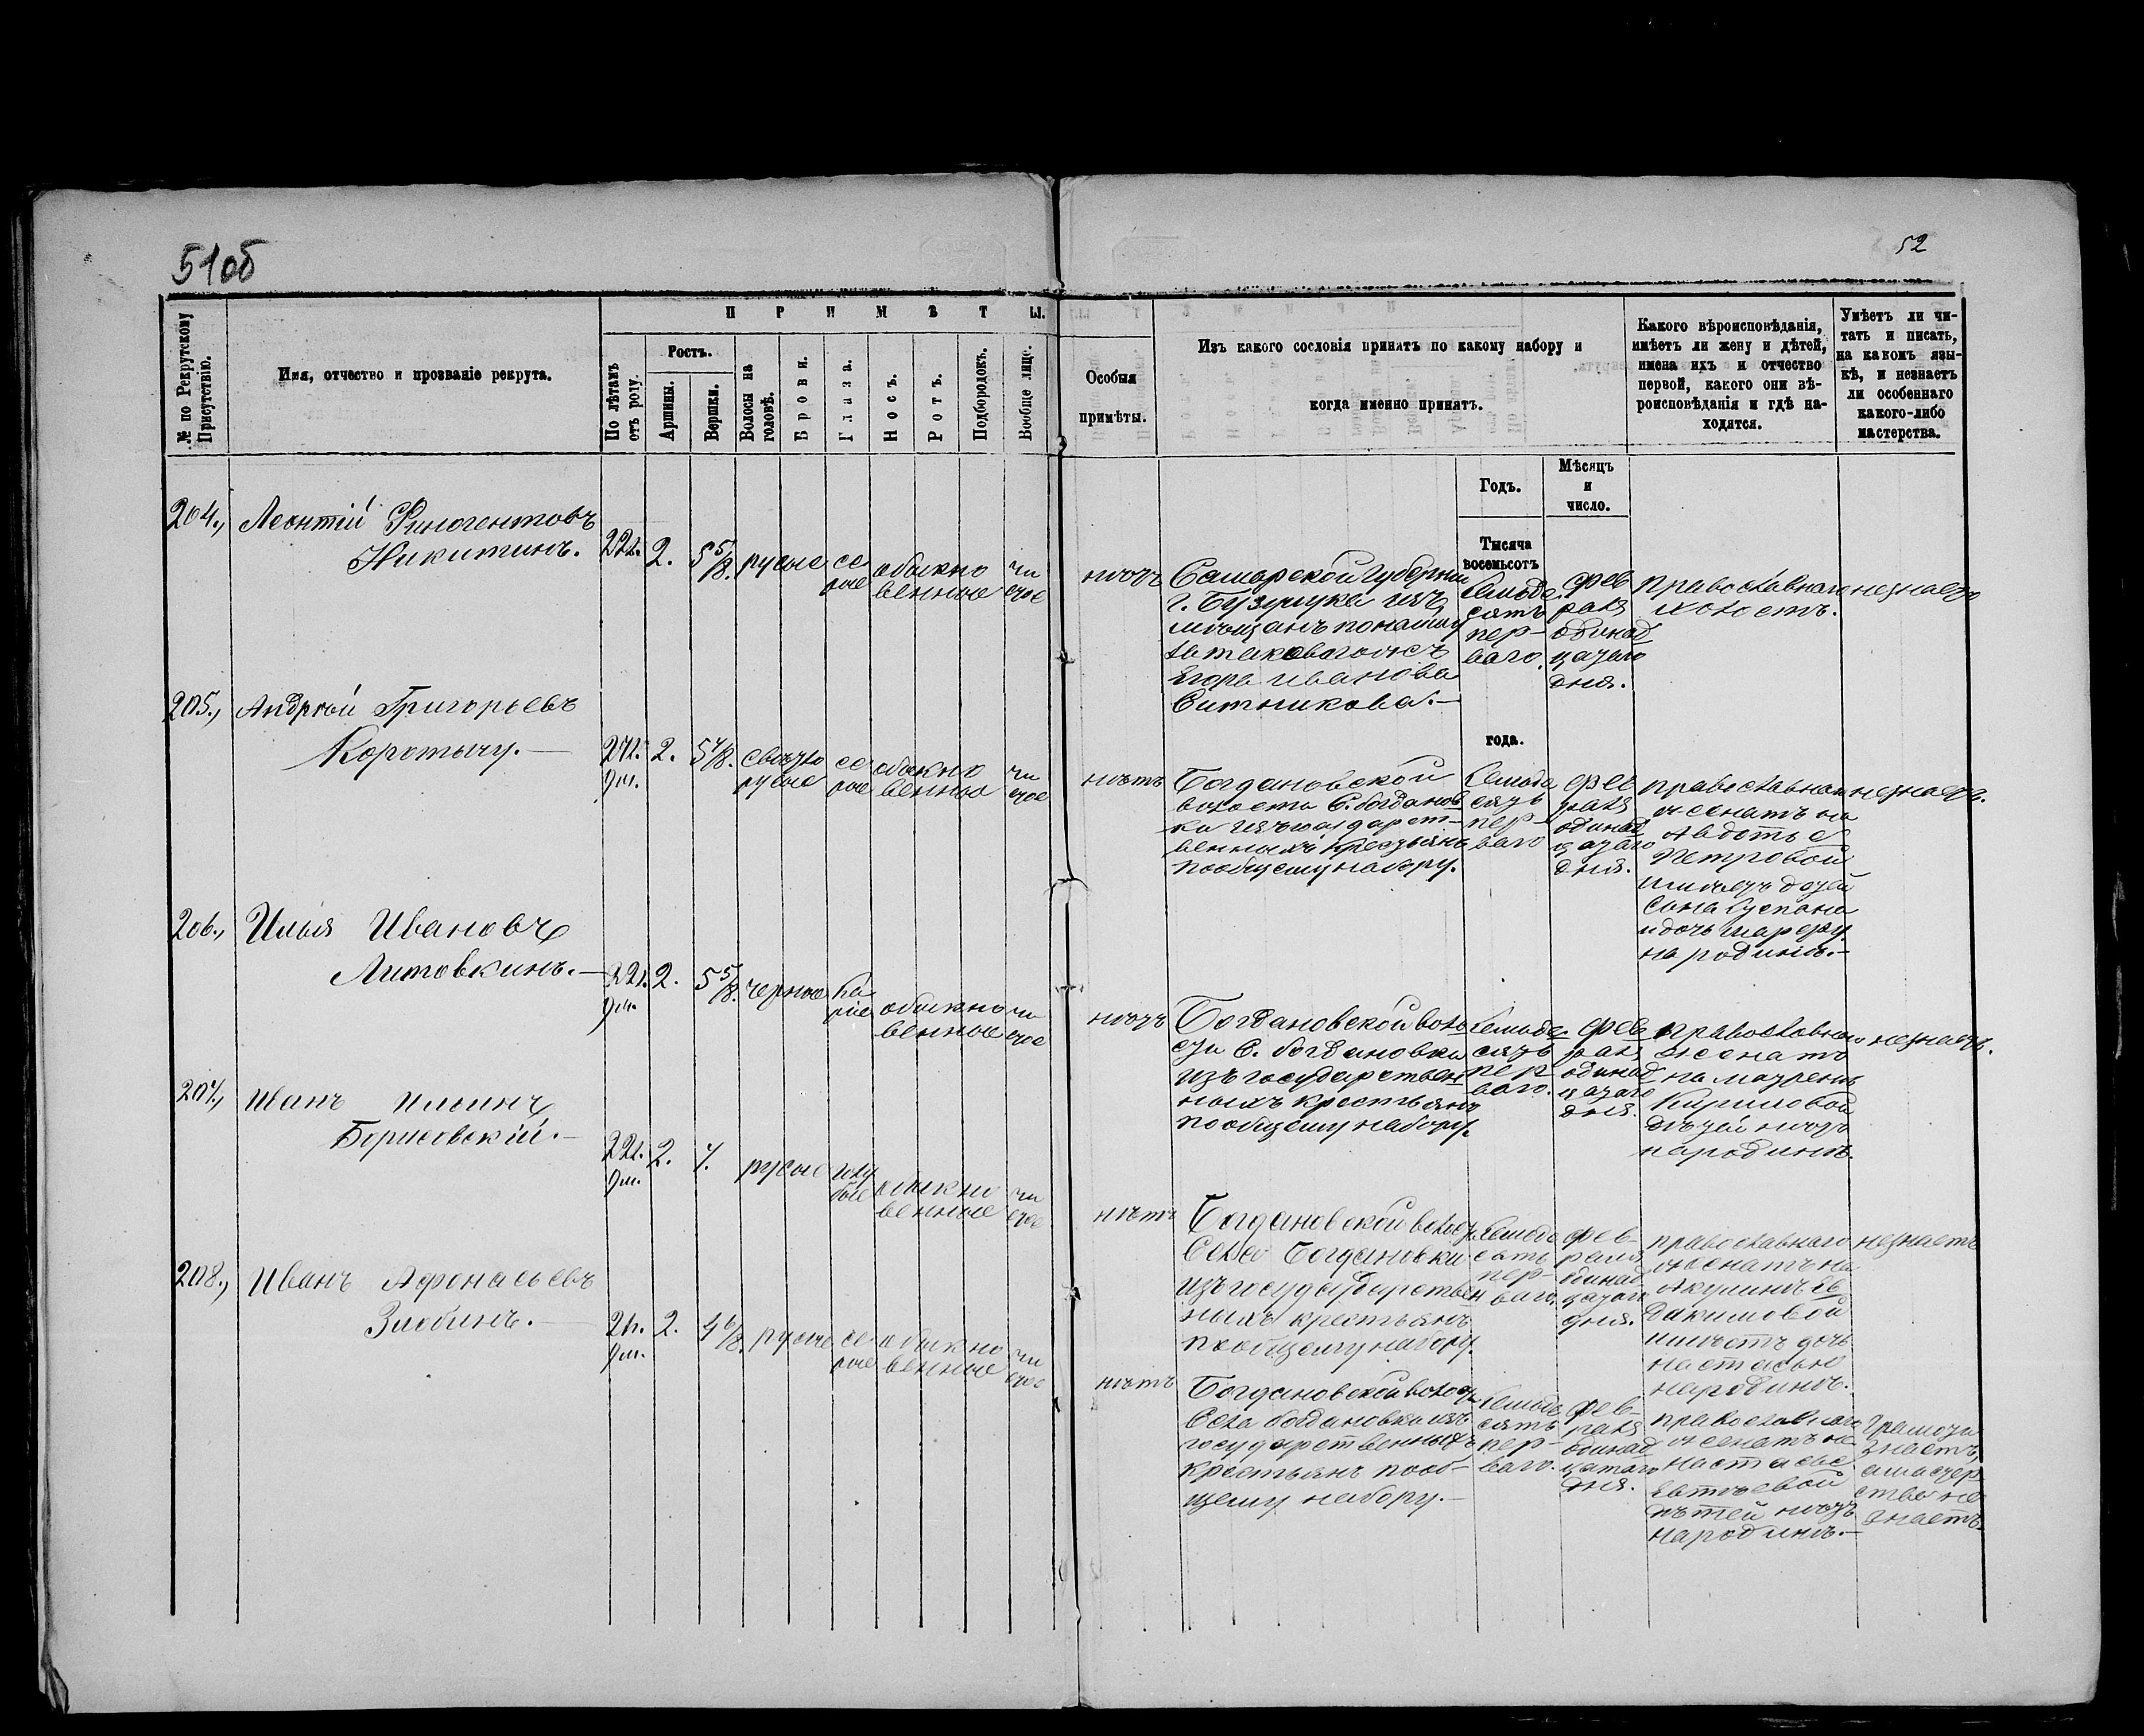 51об
52
№ по Рекрутскому Присутствію.
Имя, отчество и прозваніе рекрута.
ПРИМѢТЫ.
По лѣтамъ отъ роду.
Ростъ.
Аршины.
Вершки.
Волосы на головѣ.
Брови.
Глаза.
Носъ.
Ротъ.
Подбородокъ.
Вообще лице.
Особыя
примѣты.
Изъ какого сословія принятъ по какому набору и
когда именно принятъ.
Какого вѣроисповѣданія,
имѣетъ ли жену и дѣтей,
имена ихъ и отчество
первой, какого они вѣ-
роисповѣданія и гдѣ на-
ходятся.
Умѣетъ ли чи-
тать и писать,
на какомъ язы-
кѣ, и незнаетъ
ли особеннаго
какого-либо
мастерства.
Годъ.
Мѣсяцъ
и
число.
Тысяча
восемьсотъ
года.
204., Леонтій Финогентовъ
Никитинъ.
22л. 2. 5 5/8. русые се
рые обыкно
венные чи
стое
нѣтъ
Самарской Губерніи
г. Бузулука изъ
мѣщанъ
Егора Иванова
Ситникова.—
Семьде
сятъ
пер-
ваго.
фев
раля
одинад
цатаго
дня.
Православнаго
холостъ.
незнаетъ
205., Андрей Григорьевъ
Коротычу.—
2. свѣтло
русые се
рые обыкно
венное чи
стое
нѣтъ
Богдановской
волости С. Богданов
ки изъ государст-
венныхъ крестьянъ
пообщему набору.
Семьде
сятъ
пер-
ваго
фев
раля
одинад
цатаго
дня.
православнаго
женатъ на
Авдотьѣ
Петровой
имѣетъ дѣтей
сына
и дочь Марфу
на родинѣ.—
незнаетъ.
206., Илья Ивановъ
Литовкинъ.—
22л. 2. 5 5/8. черные ка
ріе обыкно
венное чи
стое
9м.
нѣтъ
Богдановской воло
сти С. Богдановки
изъ государствен
ныхъ крестьянъ
пообщему набору.
Семьде
сятъ
пер
ваго.
фев
раля
одинад
цатаго
дня.
православнаго
женатъ
на Матренѣ
Кириловой
дѣтей нѣтъ
народинѣ.
незнаетъ.
207., Иванъ Ильинъ
Борисовскій.—
22л. 2. русые голу
бые обыкно
венные чи
стое
9м.
нѣтъ
Богдановской волос
Села Богдановки
ныхъ крестьянъ
пообщему набору.
Семьде
сятъ
пер-
ваго.
фев-
раля
одинад
цатаго
дня.
православнаго
женатъ на
Акулинѣ Ев
дакимовой
имѣетъ дочь
настасью
народинѣ.
незнаетъ
208., Иванъ Афонасьевъ
Злобинъ.—
21л. 2. 4 6/8. русые се
рые обыкно
венные чи
стое
9м.
нѣтъ
Богдановской волос
Села богдановки изъ
государственныхъ
крестьянъ пооб-
щему набору.—
Семьде
сятъ
пер-
ваго.
фев-
раля
одинад
цатаго
дня.
православнаго
женатъ на
настасье
дѣтей нѣтъ
народинѣ.—
Грамоти
знаетъ,
а мастер
ства не
знаетъ.